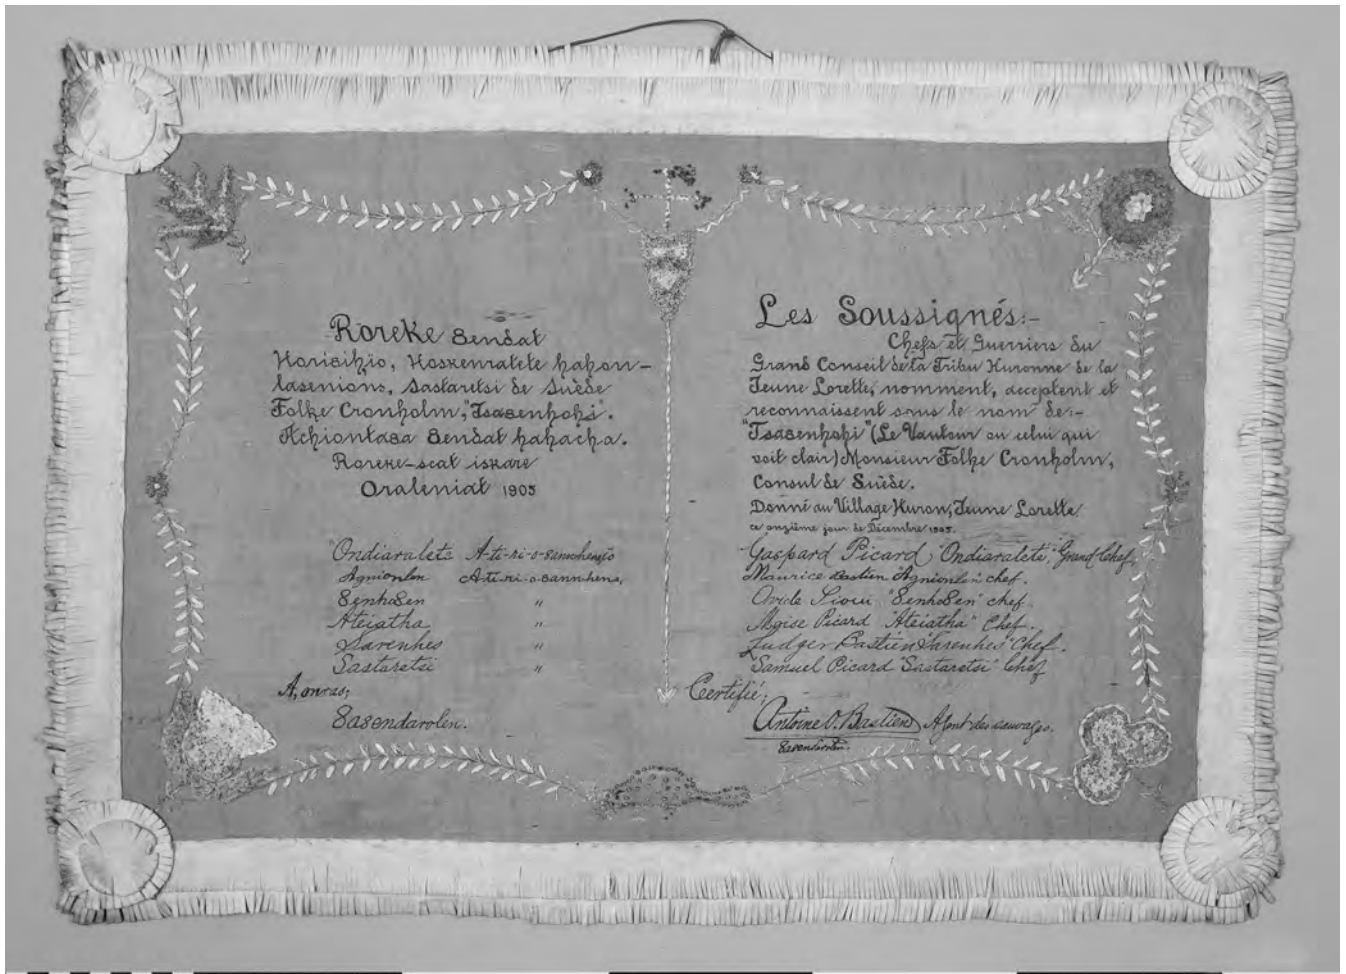 Roreke 8endat
Horisihio, Hoskenratete hahon-
lasenions, Sastaretsi de Suède
Folke Cronholm, "Tsasenhohi".
Achiontasa 8endat hahacha.
Roreke-scat iskare
Oraleniat 1905
"Ondiaralete A-ti-ri-o-
Agnionlen A-ti-ri-o-sannhens,
8enho8en "
Ateiatha "
Sarenhes "
Sastaretsi "
A, onras;
8a8endarolen.
Les Soussignés:-
Chefs et Guerriers du
Grand Conseil de la Tribu Huronne de la
Jeune Lorette, nomment, acceptent et
reconnaissent sous le nom de:-
"Tsasenhohi" (Le Vautour ou celui qui
voit clair) Monsieur Folke Cronholm,
Consul de Suède.
Donné au Village Huron, Jeune Lorette
ce onzième jour de Décembre 1905.
Gaspard Picard "Ondiaralete", Grand Chef,
Maurice Bastien "Agnionlen" chef.
Ovide Sioui "8enho8en" chef.
Moise Picard "Ateiatha" Chef.
Ludger Bastien "Sarenhes" Chef.
Samuel Picard "Sastaretsi" Chef
Certifié;
Antoine O. Bastien Agent des sauvages.